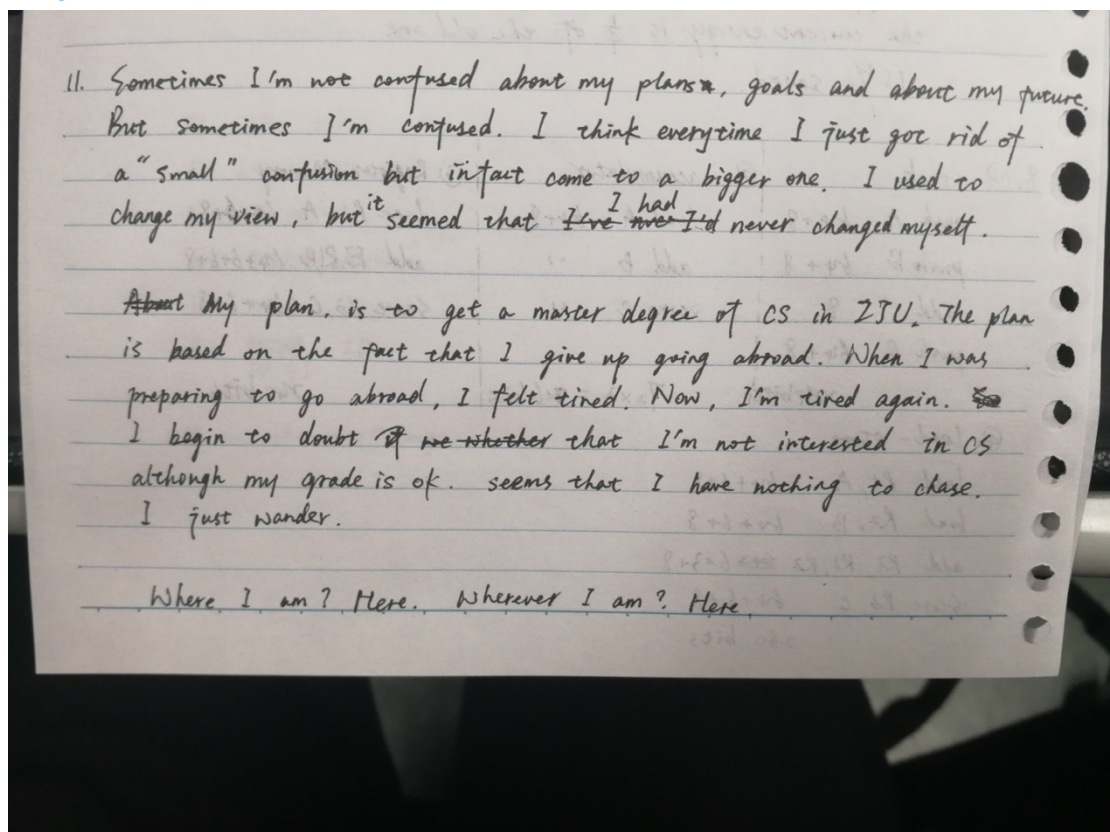 11. Sometimes I'm not confused about my plans, goals and about my future.
But sometimes I'm confused. I think everytime I just got rid of
a "small" confusion but infact come to a bigger one. I used to
change my view, but it seemed that I had never changed myself.
My plan, is to get a master degree of CS in ZJU. The plan
is based on the fact that I give up going abroad. When I was
preparing to go abroad, I felt tired. Now, I'm tired again.
I begin to doubt that I'm not interested in CS
although my grade is ok. seems that I have nothing to chase.
I just wander.
Where I am? Here. Wherever I am? Here